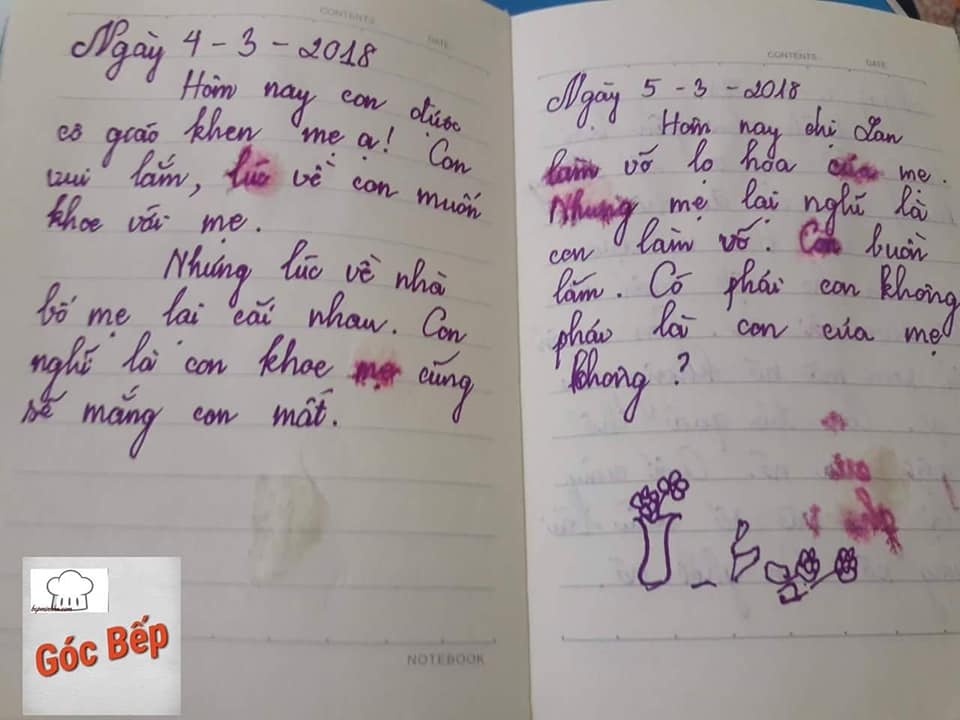 CONTENTS
DATE
Ngày 4-3-2018
Hôm nay con được
cô giáo khen mẹ ạ! Con
vui lắm, lúc về con muốn
khoe với mẹ.
Nhưng lúc về nhà
bố mẹ lại cãi nhau. Con
nghĩ là con khoe mẹ cũng
sẽ mắng con mất.
NOTEBOOK
Góc Bếp
CONTENTS
DATE
Ngày 5-3-2018
Hôm nay chị Lan
làm vỡ lọ hoa của mẹ.
Nhưng mẹ lại nghĩ là
con làm vỡ. Con buồn
lắm. Có phải con không
phải là con của mẹ
không?